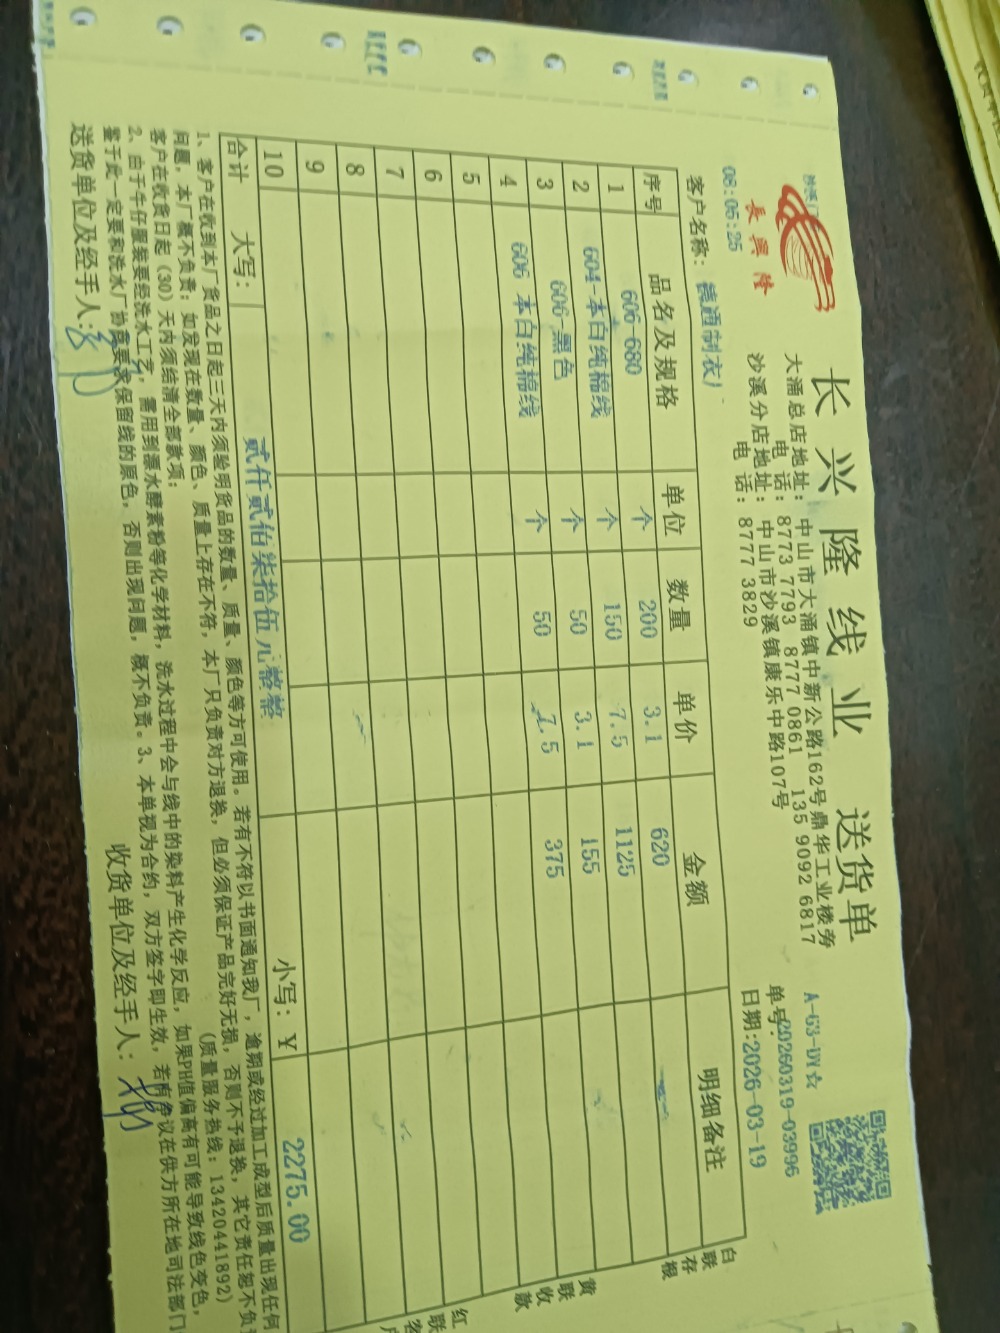 长兴隆线业 送货单
長興隆
08:05:25
大涌总店地址：中山市大涌镇中新公路162号鼎华工业楼旁
电 话：8773 7793 8777 0861 135 9092 6817
沙溪分店地址：中山市沙溪镇康乐中路107号
电 话：8777 3829
A-63-DY☆
单号：20260319-03996
日期：2026-03-19
客户名称：德通制衣厂
序号 品名及规格 单位 数量 单价 金额 明细备注
1 606-680 个 200 3.1 620
2 604-本白纯棉线 个 150 7.5 1125
3 606-黑色 个 50 3.1 155
4 606 本白纯棉线 个 50 7.5 375
5
6
7
8
9
10
合计 大写： 贰仟贰佰柒拾伍元整整 小写：￥ 2275.00
1、客户在收到本厂货品之日起三天内须验明货品的数量、质量、颜色等方可使用。若有不符以书面通知我厂，逾期或经过加工成型后质量出现任何
问题，本厂概不负责；如发现在数量、颜色、质量上存在不符，本厂只负责对方退换，但必须保证产品完好无损，否则不予退换，其它责任恕不负
客户在收货日起（30）天内须结清全部款项；（质量服务热线：13420441892）
2、由于牛仔服装要经洗水工艺，需用到漂水酵素粉等化学材料，洗水过程中会与线中的染料产生化学反应，如果PH值偏高有可能导致线色变色，
鉴于此一定要和洗水厂协商要求保留线的原色，否则出现问题，概不负责。3、本单视为合约，双方签字即生效，若有争议在供方所在地司法部门
送货单位及经手人：
收货单位及经手人：
白联存根
黄联收款
红联客户